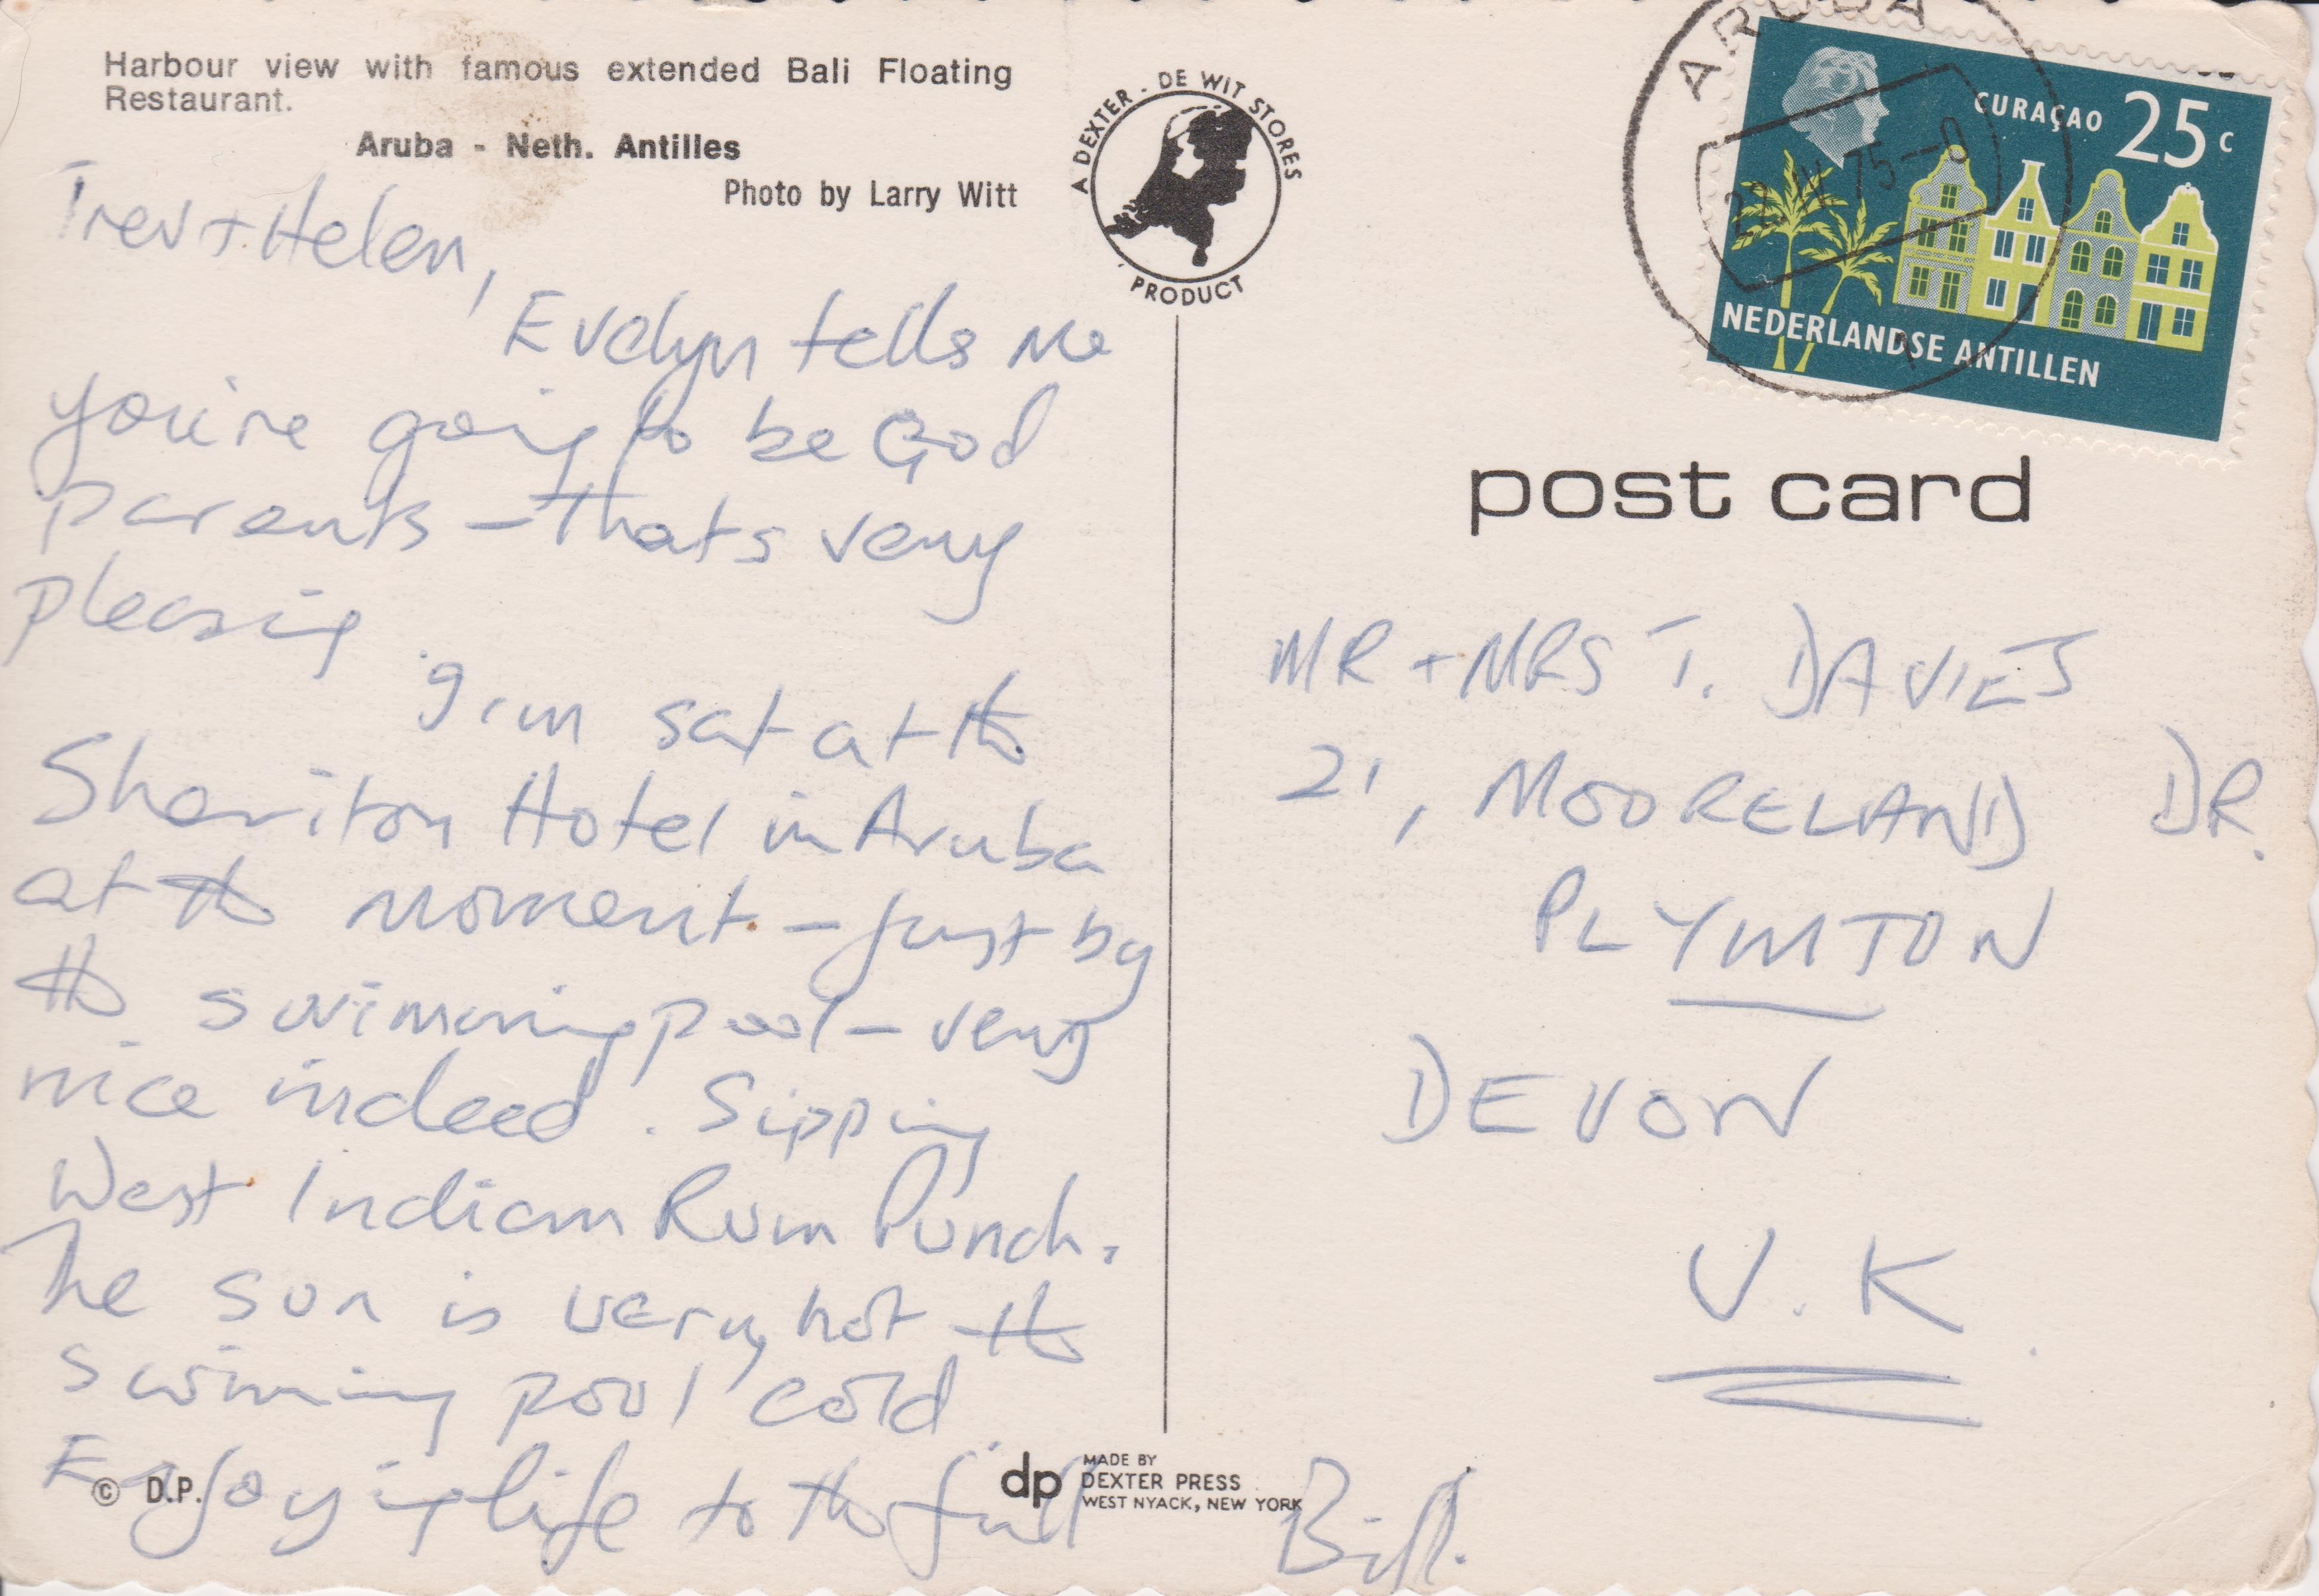 Harbour view with famous extended Bali Floating
Restaurant.
Aruba - Neth. Antilles
Photo by Larry Witt
A DEXTER - DE WIT STORES
PRODUCT
ARUBA
75
CURAÇAO 25 c
NEDERLANDSE ANTILLEN
post card
Trev + Helen,
Evelyn tells me
you're going to be God
parents - thats very
pleasing.
I'm sat at the
Sheriton Hotel in Aruba
at the moment - just by
the swimming pool - very
nice indeed. Sipping
West Indian Rum Punch.
The sun is very hot the
swiming pool cold
Enjoying life to the full
Bill.
MR + MRS T. DAVIES
21, MOORELAND DR.
PLYMTON
DEVON
U.K.
© D.P.
dp MADE BY
DEXTER PRESS
WEST NYACK, NEW YORK